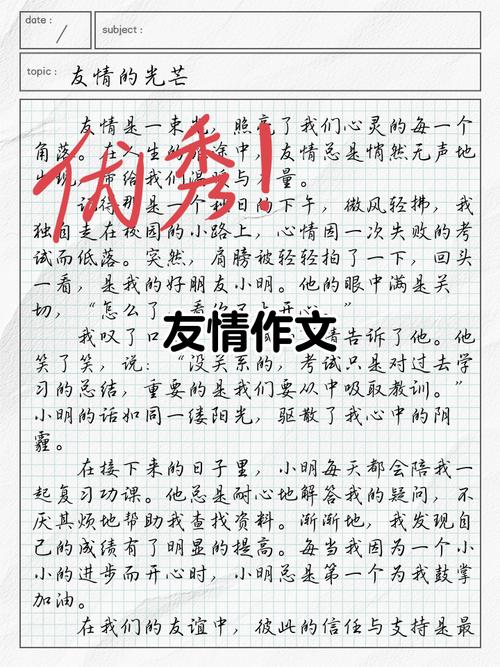 date:
subject:
topic: 友情的光芒
友情是一束光，照亮了我们心灵的每一个
角落。在人生的旅途中，友情总是悄然无声地
出现，带给我们温暖与力量。
记得那是一个秋日的下午，微风轻拂，我
独自走在校园的小路上，心情因一次失败的考
试而低落。突然，肩膀被轻轻拍了一下，回头
一看，是我的好朋友小明。他的眼中满是关
切，“怎么了，看你不开心。”
优秀！
友情作文
我叹了口 情告诉了他。他
笑了笑，说：“没关系的，考试只是对过去学
习的总结，重要的是我们要从中吸取教训。”
小明的话如同一缕阳光，驱散了我心中的阴
霾。
在接下来的日子里，小明每天都会陪我一
起复习功课。他总是耐心地解答我的疑问，不
厌其烦地帮助我查找资料。渐渐地，我发现自
己的成绩有了明显的提高。每当我因为一个小
小的进步而开心时，小明总是第一个为我鼓掌
加油。
在我们的友谊中，彼此的信任与支持是最